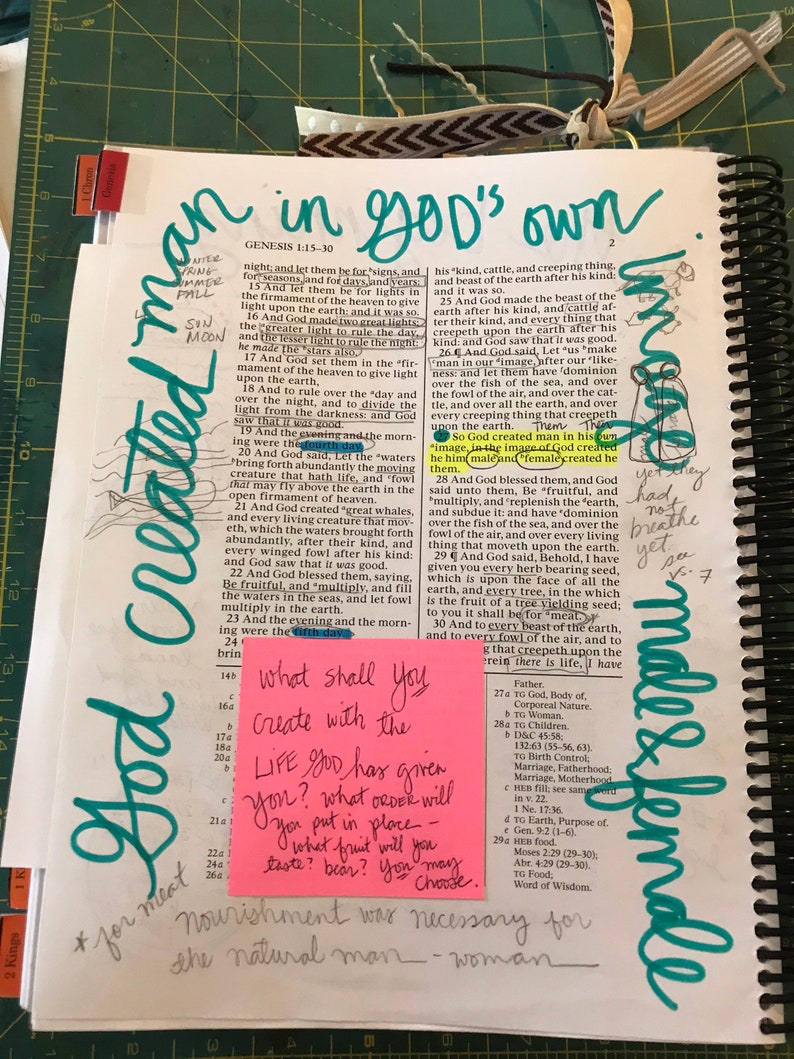 God created man in GOD's own image male & female
1 Chron
Genesis
GENESIS 1:15–30
2
WINTER
SPRING
SUMMER
FALL
SUN
MOON
night; and let them be for ᵇsigns, and
for ᶜseasons, and for days, and years:
15 And let them be for lights in
the firmament of the heaven to give
light upon the earth: and it was so.
16 And God made two great lights;
the ᵃgreater light to rule the day,
and the lesser light to rule the night:
he made the ᵇstars also.
17 And God set them in the ᵃfir-
mament of the heaven to give light
upon the earth,
18 And to rule over the ᵃday and
over the night, and to divide the
light from the darkness: and God
saw that it was good.
19 And the evening and the morn-
ing were the fourth day.
20 And God said, Let the ᵃwaters
ᵇbring forth abundantly the moving
creature that hath life, and ᶜfowl
that may fly above the earth in the
open firmament of heaven.
21 And God created ᵃgreat whales,
and every living creature that mov-
eth, which the waters brought forth
abundantly, after their kind, and
every winged fowl after his kind:
and God saw that it was good.
22 And God blessed them, saying,
Be fruitful, and ᵃmultiply, and fill
the waters in the seas, and let fowl
multiply in the earth.
23 And the evening and the morn-
ing were the fifth day.
24
brin
his ᵃkind, cattle, and creeping thing,
and beast of the earth after his kind:
and it was so.
25 And God made the beast of the
earth after his kind, and cattle af-
ter their kind, and every thing that
creepeth upon the earth after his
kind: and God saw that it was good.
26 ¶ And God said, Let ᵃus ᵇmake
ᶜman in our ᵈimage, after our ᵉlike-
ness: and let them have ᶠdominion
over the fish of the sea, and over
the fowl of the air, and over the cat-
tle, and over all the earth, and over
every creeping thing that creepeth
upon the earth.
Them Their
27 So God created man in his own
ᵃimage, in the image of God created
he him; male and ᵇfemale created he
them.
28 And God blessed them, and God
said unto them, Be ᵃfruitful, and
ᵇmultiply, and ᶜreplenish the ᵈearth,
and subdue it: and have ᵉdominion
over the fish of the sea, and over the
fowl of the air, and over every living
thing that moveth upon the earth.
29 ¶ And God said, Behold, I have
given you every herb bearing seed,
which is upon the face of all the
earth, and every tree, in the which
is the fruit of a tree yielding seed;
to you it shall be for ᵃmeat.
30 And to every beast of the earth,
and to every fowl of the air, and to
thing that creepeth upon the
erein there is life, I have
yet they
had
not
breathe
yet.
see
vs. 7
14b
c
16a
b
17a
18a
20a
b
c
21a
22a
24a
26a
what shall you
create with the
LIFE GOD has given
you? what ORDER will
you put in place –
what fruit will you
taste? bear? you may
choose.
Father.
27a TG God, Body of,
Corporeal Nature.
b TG Woman.
28a TG Children.
b D&C 45:58;
132:63 (55–56, 63).
TG Birth Control;
Marriage, Fatherhood;
Marriage, Motherhood.
c HEB fill; see same word
in v. 22.
1 Ne. 17:36.
d TG Earth, Purpose of.
e Gen. 9:2 (1–6).
29a HEB food.
Moses 2:29 (29–30);
Abr. 4:29 (29–30).
TG Food;
Word of Wisdom.
* for meat
nourishment was necessary for
the natural man – woman
1 K
2 Kings